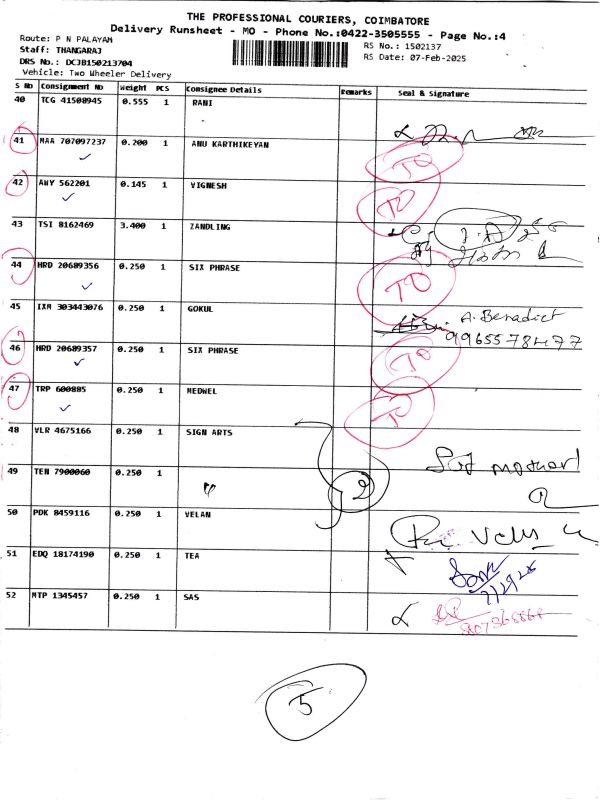 THE PROFESSIONAL COURIERS, COIMBATORE
Delivery Runsheet - MO - Phone No.:0422-3505555 - Page No.:4
Route: P N PALAYAM
Staff: THANGARAJ
DRS No.: DCJB150213704
Vehicle: Two Wheeler Delivery
RS No.: 1502137
RS Date: 07-Feb-2025
S No Consignment No Weight PCS Consignee Details Remarks Seal & Signature
40 TCG 41508945 0.555 1 RANI
41 MAA 707097237 0.200 1 ANU KARTHIKEYAN TO
42 AWY 562201 0.145 1 VIGNESH TO
43 TSI 8162469 3.400 1 ZANDLING
44 HRD 20689356 0.250 1 SIX PHRASE TO
45 IXM 303443076 0.250 1 GOKUL A. Benadict
9965578477
46 HRD 20689357 0.250 1 SIX PHRASE TO
47 TRP 600885 0.250 1 MEDWEL TO
48 VLR 4675166 0.250 1 SIGN ARTS
49 TEN 7900060 0.250 1
2
50 PDK 8459116 0.250 1 VELAN
51 EDQ 18174190 0.250 1 TEA
52 MTP 1345457 0.250 1 SAS
5